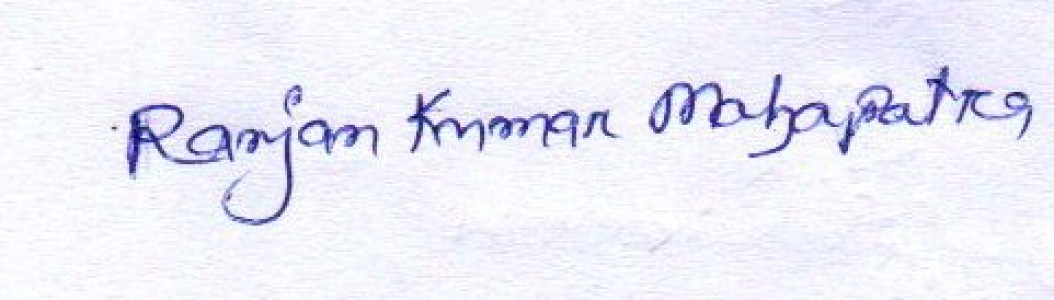 Ranjan Kumar Mahapatra